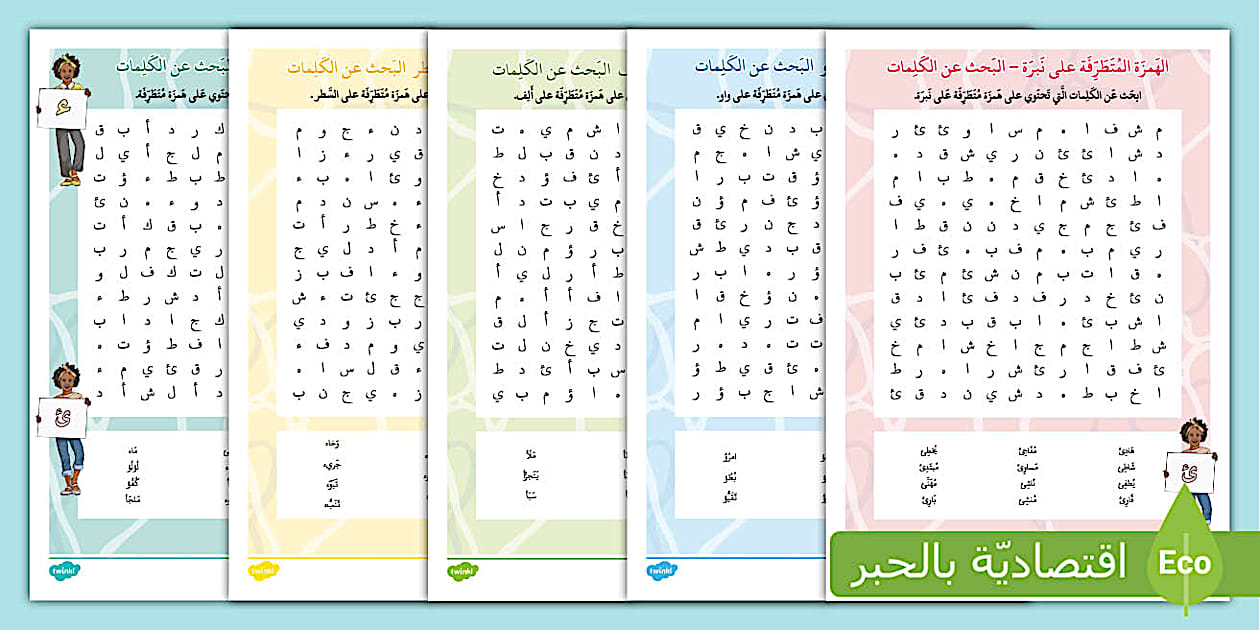 الهَمزَة المُتَطَرِّفَة على نَبرَة – البَحث عن الكَلِمات
ابحَث عَن الكَلِمات الَّتي تَحتَوي على هَمزَة مُتَطَرِّفَة عَلى نَبرَة.
م ش ف ا ه م س ا و ئ ئ ر
د ش ا ئ ئ ن ر ي ش ق د ه
ه ا د ئ خ ق م ه ط ب ا م
ا ط ئ ش م ا خ ه ي ه ي ف
ف ئ ج م ج ي د ن ن ق ط ا
ر ي م ب ه م ف ب ه ئ ف ر
ه ق ا ت ب م ن ش ئ م ئ ب
ن ئ خ د ر ف د ف ئ ا د ق
ا ش ب ئ ه ا ب ق ب د ئ ي
ش ط ا ج م ج ا خ ش ا م خ
ئ ف ق ا ر ئ ش ر ا ه ر ط
ا خ ب ط ه د ش ي ن د ق ئ
هانِئ مُفاجِئ يُخطِئ
شاطِئ مَساوِئ مُبتَدِئ
يُطفِئ يُنشِئ يُهَنِّئ
قارِئ مُنشِئ بارِئ
ئ
اقتصاديّة بالحبر Eco
البَحث عن الكَلِمات
على هَمزَة مُتَطَرِّفَة على واو.
ب د ن خ ي ق
ي ش ا ه ج م
ؤ ق ت ب ر ا
ؤ ئ ف م ؤ ن
د ج ن ر ئ ق
ق ب د ي ط ش
ؤ ر ه ا ب ر
ه ن ؤ خ ق ا
ف ت ر ي ا م
ت ت ه د ه ر
ه ئ ق ي ط ؤ
ش ا ج ب ؤ ر
امرُؤ
تَنَبُّؤ
twinkl
البَحث عن الكَلِمات
على هَمزَة مُتَطَرِّفَة على ألِف.
ا ش م ي ه ت
د ن ق ب ل ط
أ ئ ف ؤ د خ
م ي ب ت د أ
خ ق ر ج ا س
ب ر ؤ م ن ل
ط أ ر ل ي أ
ا ف أ أ ه م
ت ج ز أ ل ق
د ي خ ن ل ت
س ب أ ئ د ط
ه ا ؤ م ب ي
مَلَأ
يَتَجَزَّأ
سَبَأ
twinkl
البَحث عن الكَلِمات
على هَمزَة مُتَطَرِّفَة على السَّطر.
د ن ء ج و م
ق ي ر ء ز ا
و ئ ا ه ب ء
ء ه س ن د م
ء خ ط ر أ ت
م أ د ل ي ج
و ء ا ف ب ز
ج ج ئ ت ء ش
ر ب ز و د ي
ي و م د ف ء
ء ق ل س ا ه
ز ه ي ج ن ب
جَريء
twinkl
البَحث عن الكَلِمات
تَحتَوي عَلى هَمزَة مُتَطَرِّفَة.
ك ر د أ ب ق
م ل ج أ ي ل
ط ب ط ء ؤ ت
د و ء ه ن ئ
ه ب ق ك أ ت
ر ي ج م ر ب
ل ت ك ف ل و
أ د ش ر ط ء
ك ج ا د ا ب
ا ف ط ؤ ت ه
ر ق ئ ي م ء
د أ ل ش أ د
ماء
لُؤلُؤ
كُفُؤ
مَلجَأ
ء
ئ
twinkl